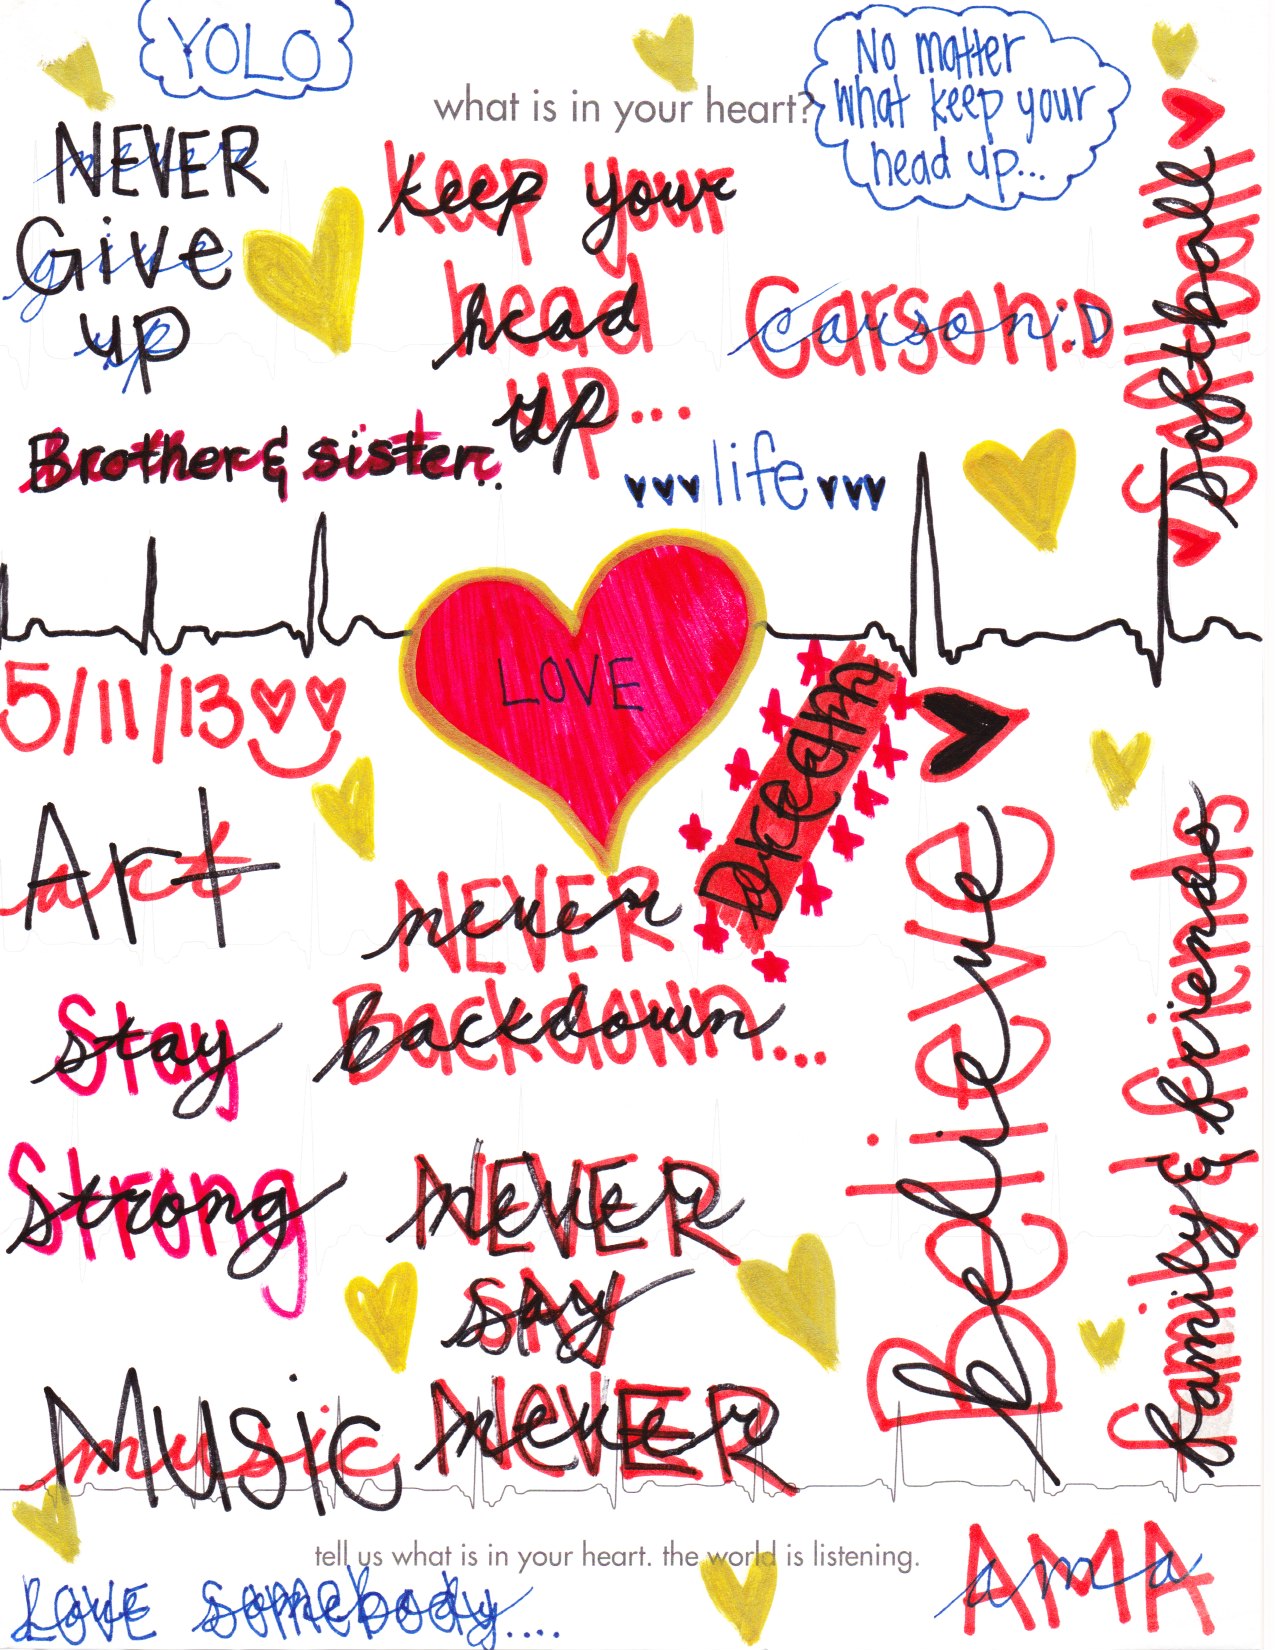 YOLO
No matter
what keep your
head up...
what is in your heart?
NEVER
never
Give
give
up
up
Keep your
keep your
head
head
up...
up
Carson:D
carson:D
Softball
softball
Brother & sister..
life
LOVE
5/11/13
Dream
Art
art
NEVER
never
Backdown...
backdown
Believe
Believe
family & friends
family & friends
Stay
stay
Strong
strong
NEVER
never
SAY
say
NEVER
never
MUSIC
music
tell us what is in your heart. the world is listening.
AMA
ama
LOVE somebody....